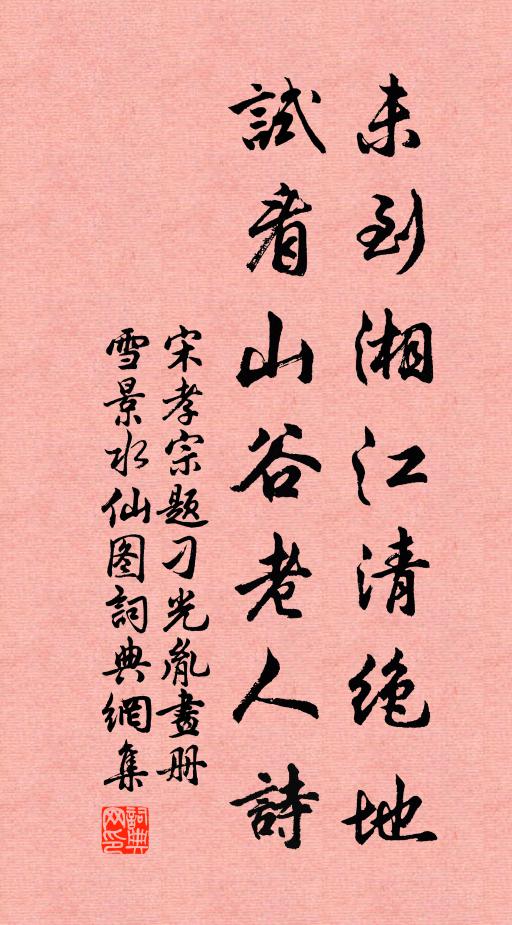 未到湘江清絶地
試看山谷老人詩
宋孝宗題刁光胤畫册
雪景水仙图詞典網集
詞典网印